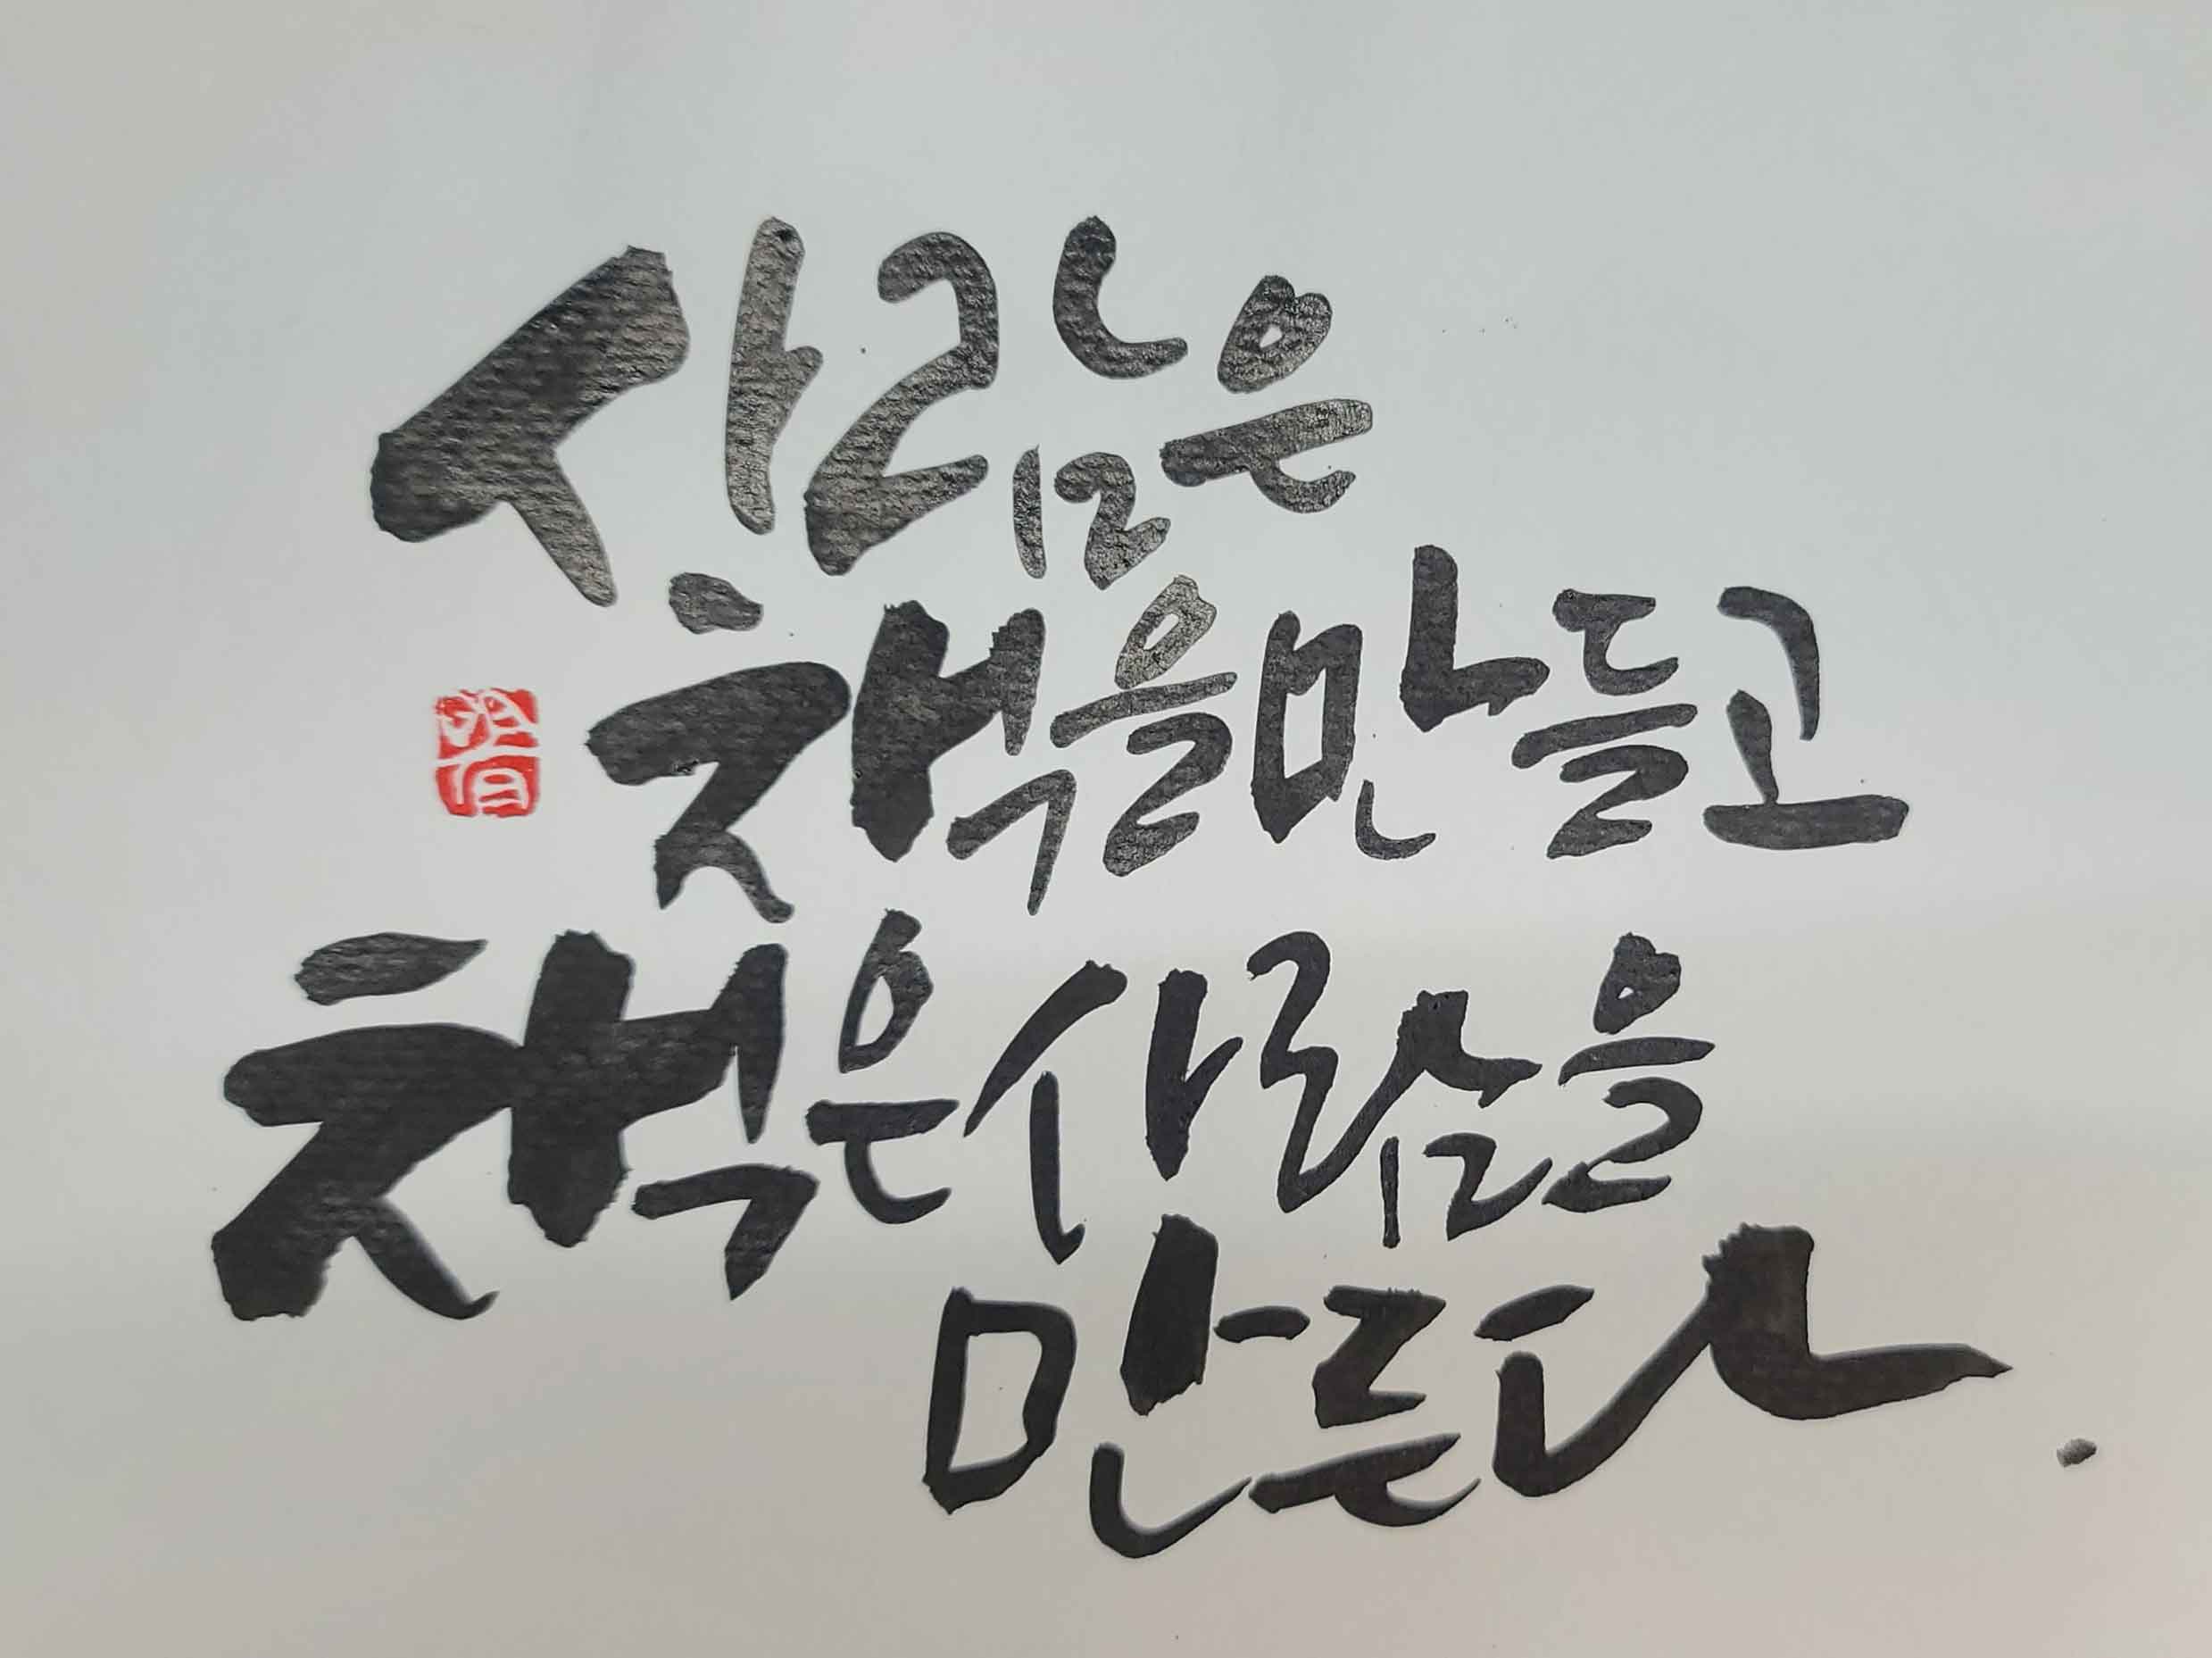 사람은
책을 만들고
책은 사람을
만든다.